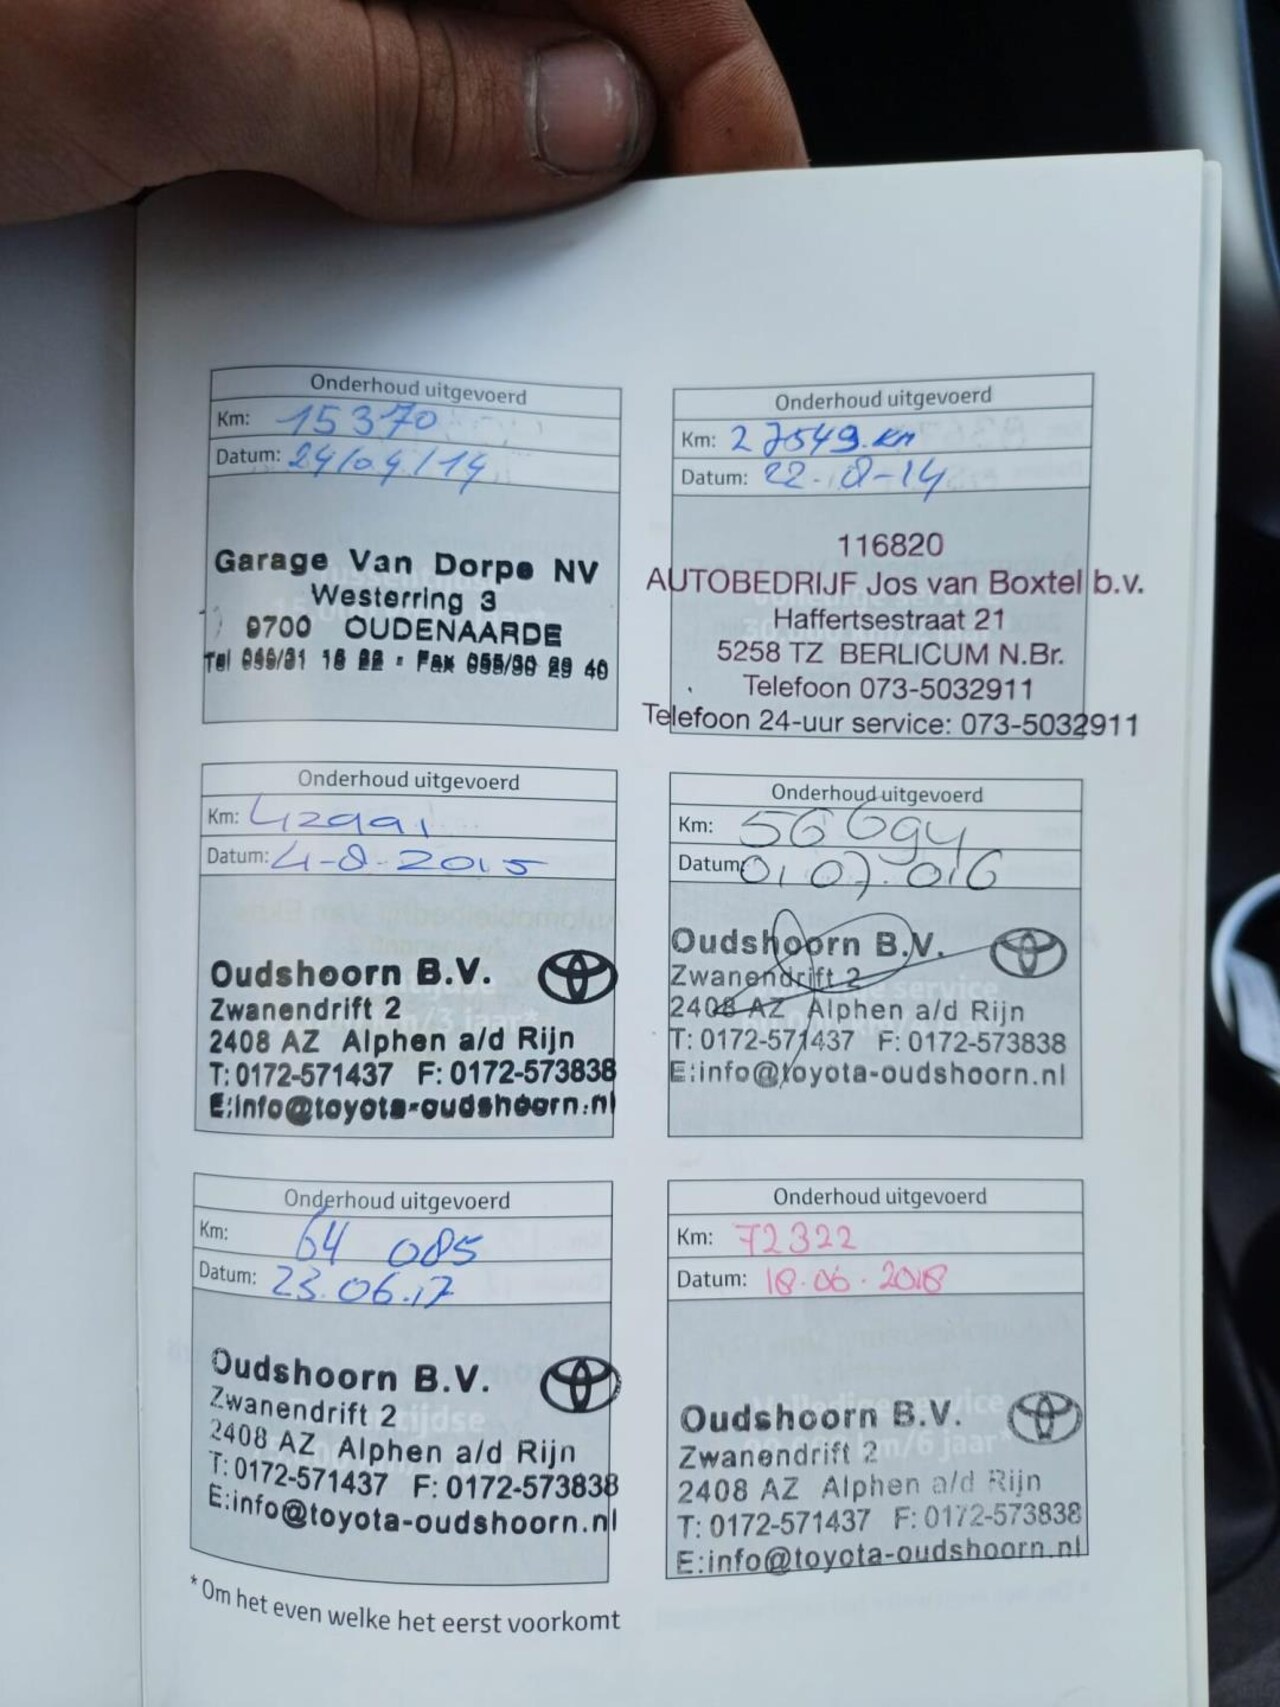 Onderhoud uitgevoerd
Km: 15370
Datum: 24/04/14
Garage Van Dorpe NV
Westerring 3
9700 OUDENAARDE
Tel 055/31 16 22 - Fax 055/30 29 40
Onderhoud uitgevoerd
Km: 27549 km
Datum: 22-8-14
116820
AUTOBEDRIJF Jos van Boxtel b.v.
Haffertsestraat 21
5258 TZ BERLICUM N.Br.
Telefoon 073-5032911
Telefoon 24-uur service: 073-5032911
Onderhoud uitgevoerd
Km: 42991
Datum: 4-8-2015
Oudshoorn B.V.
Zwanendrift 2
2408 AZ Alphen a/d Rijn
T: 0172-571437 F: 0172-573838
E:info@toyota-oudshoorn.nl
Onderhoud uitgevoerd
Km: 56694
Datum: 01.07.016
Oudshoorn B.V.
Zwanendrift 2
2408 AZ Alphen a/d Rijn
T: 0172-571437 F: 0172-573838
E:info@toyota-oudshoorn.nl
Onderhoud uitgevoerd
Km: 64 085
Datum: 23.06.17
Oudshoorn B.V.
Zwanendrift 2
2408 AZ Alphen a/d Rijn
T: 0172-571437 F: 0172-573838
E:info@toyota-oudshoorn.nl
Onderhoud uitgevoerd
Km: 72322
Datum: 18.06.2018
Oudshoorn B.V.
Zwanendrift 2
2408 AZ Alphen a/d Rijn
T: 0172-571437 F: 0172-573838
E:info@toyota-oudshoorn.nl
* Om het even welke het eerst voorkomt